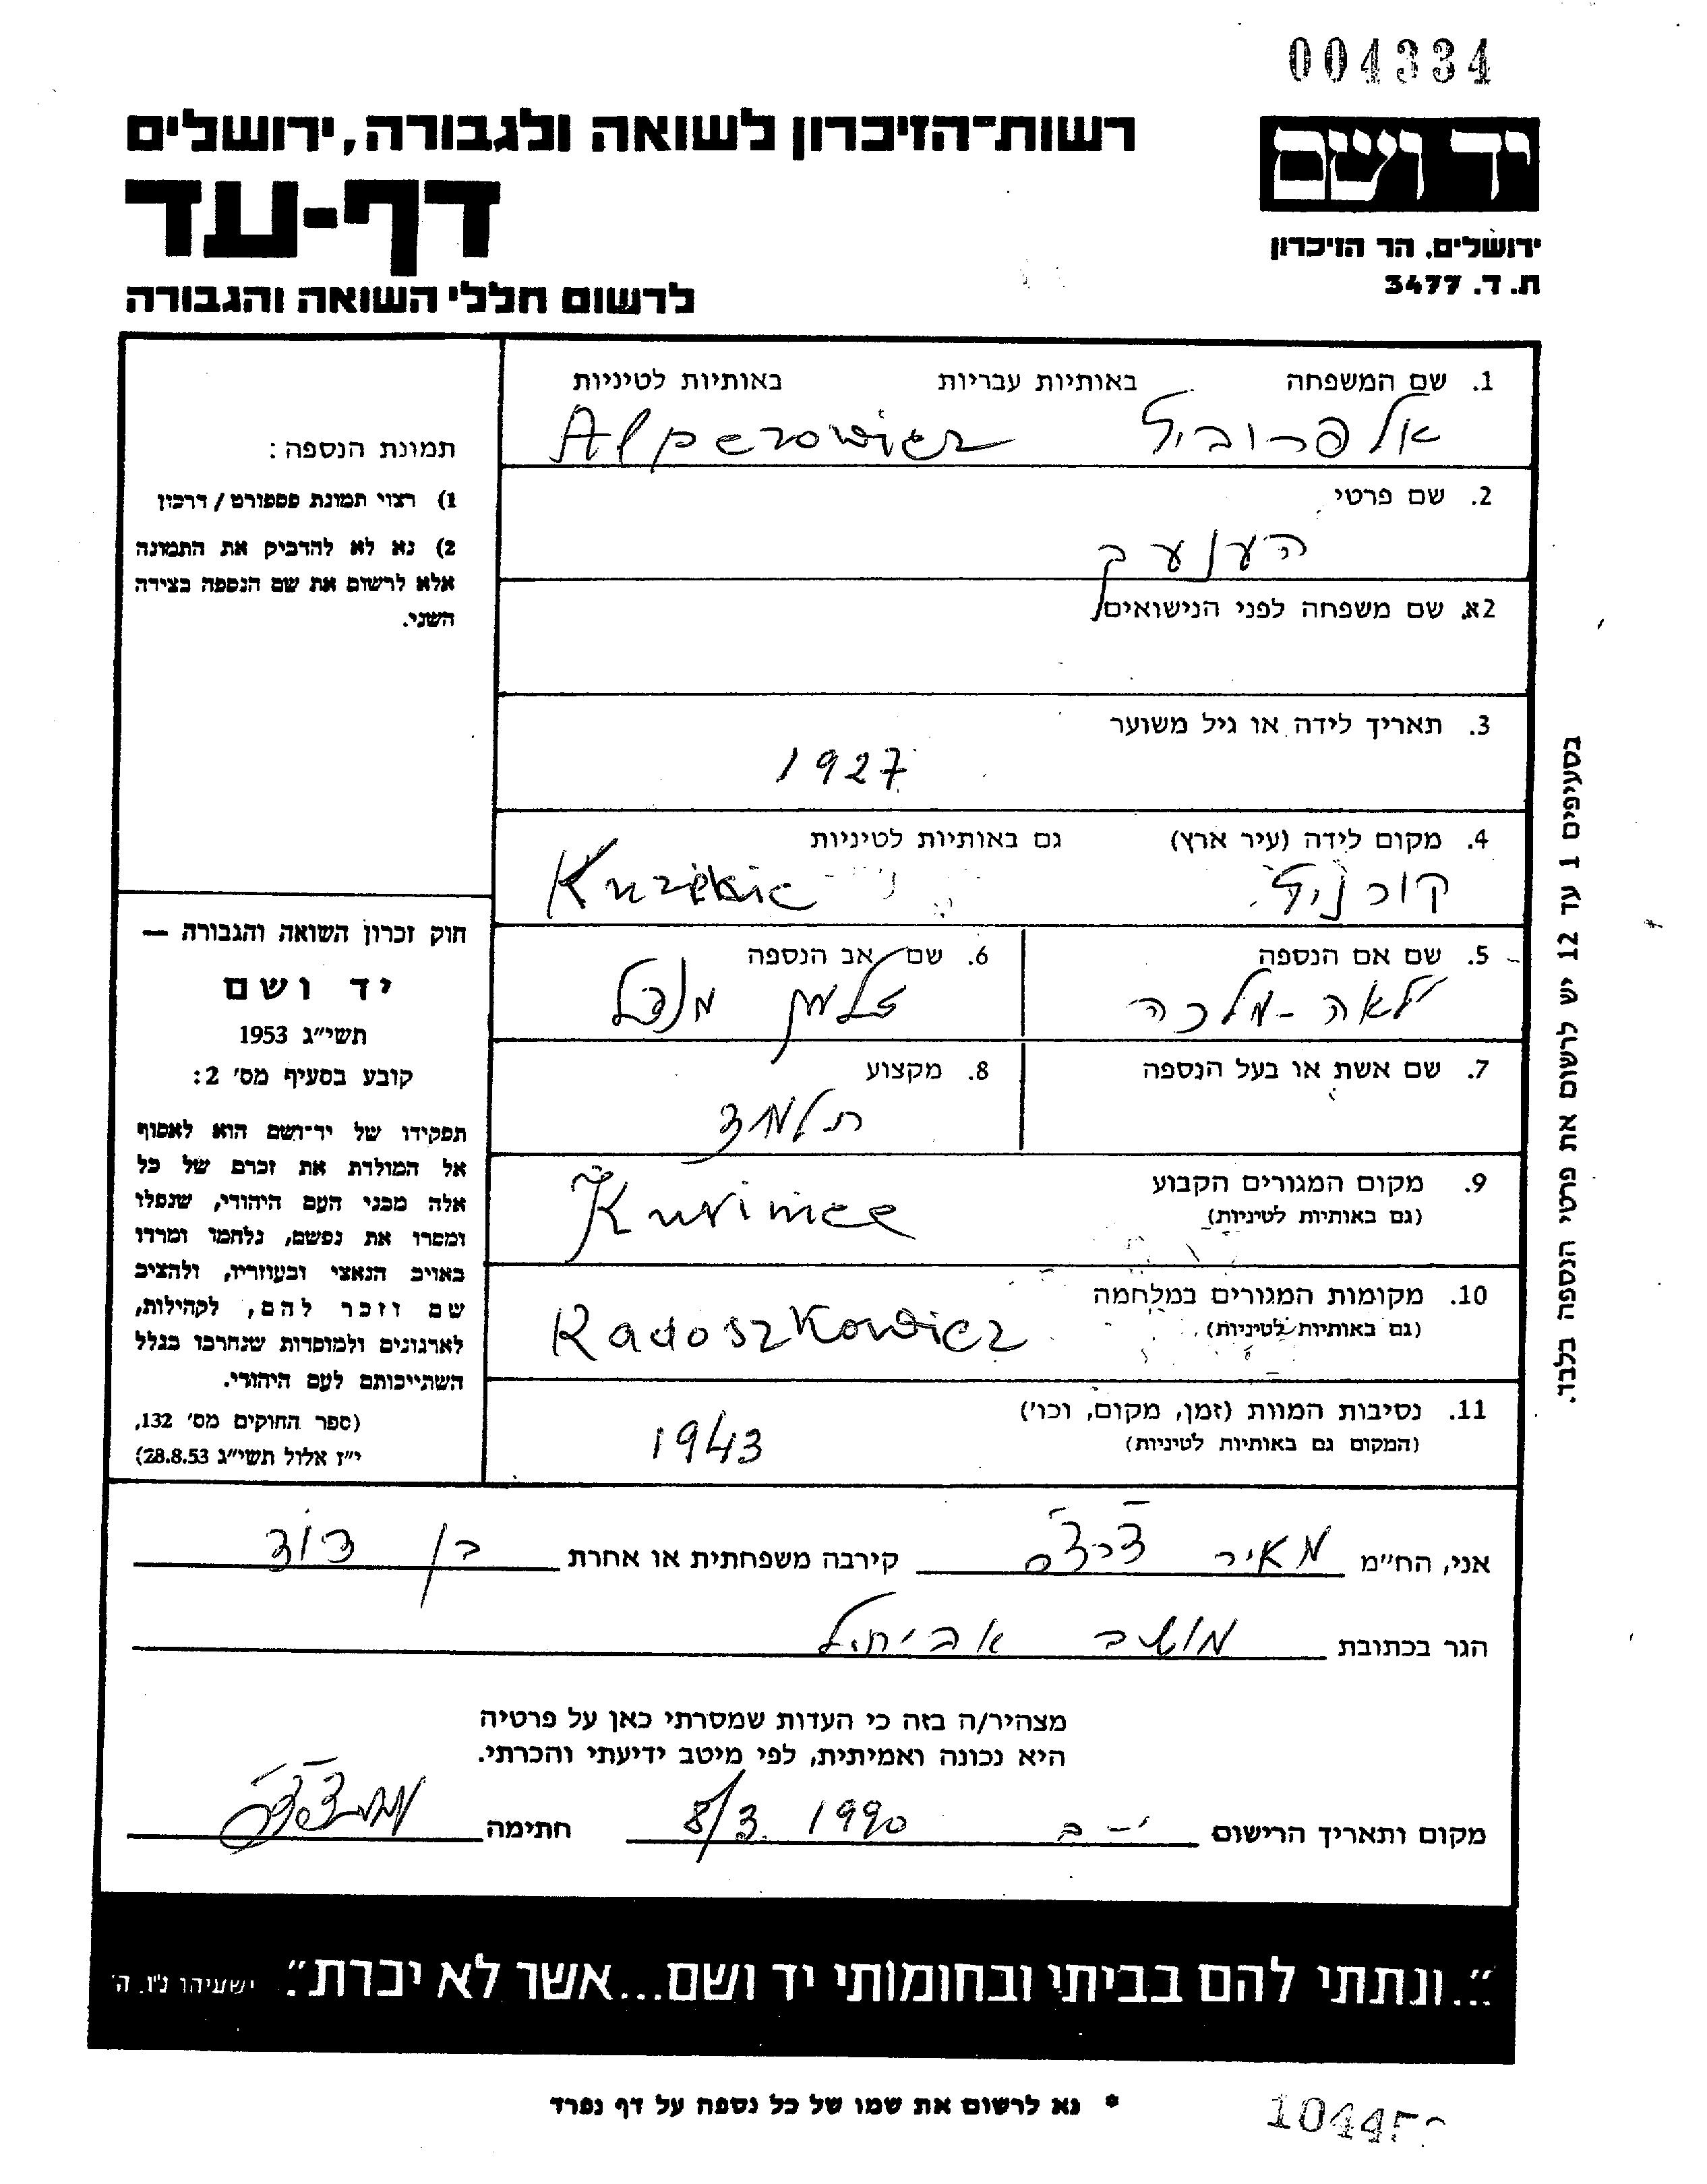 004334
רשות־הזיכרון לשואה ולגבורה, ירושלים
יד ושם
דף-עד
ירושלים. הר הזיכרון
ת. ד. 3477
לרשום חללי השואה והגבורה
1. שם המשפחה באותיות עבריות באותיות לטיניות
Alperowicz
2. שם פרטי
הענעק
2א. שם משפחה לפני הנישואים
3. תאריך לידה או גיל משוער
1927
4. מקום לידה (עיר ארץ) גם באותיות לטיניות
5. שם אם הנספה
לאה-מלכה
6. שם אב הנספה
זלמן מנדל
7. שם אשת או בעל הנספה
8. מקצוע
תלמד
9. מקום המגורים הקבוע
(גם באותיות לטיניות)
10. מקומות המגורים במלחמה
(גם באותיות לטיניות)
Radoszkowicz
11. נסיבות המוות (זמן, מקום, וכו')
(המקום גם באותיות לטיניות)
1943
תמונת הנספה:
1) רצוי תמונת פספורט / דרכון
2) נא לא להדביק את התמונה
אלא לרשום את שם הנספה בצידה
השני.
חוק זכרון השואה והגבורה —
יד ושם
תשי״ג 1953
קובע בסעיף מס' 2:
תפקידו של יד־ושם הוא לאסוף
אל המולדת את זכרם של כל
אלה מבני העם היהודי, שנפלו
ומסרו את נפשם, נלחמו ומרדו
באויב הנאצי ובעוזריו, ולהציב
שם וזכר להם, לקהילות,
לארגונים ולמוסדות שנחרבו בגלל
השתייכותם לעם היהודי.
(ספר החוקים מס' 132,
י״ז אלול תשי״ג 28.8.53)
בסעיפים 1 עד 12 יש לרשום את פרטי הנספה בלבד.
אני, הח״מ מאיר קירבה משפחתית או אחרת בן דוד
הגר בכתובת מושב אביחיל
מצהיר/ה בזה כי העדות שמסרתי כאן על פרטיה
היא נכונה ואמיתית, לפי מיטב ידיעתי והכרתי.
מקום ותאריך הרישום 8/3 1990 חתימה
"...ונתתי להם בביתי ובחומותי יד ושם...אשר לא יכרת". ישעיהו נ״ו, ה'
* נא לרשום את שמו של כל נספה על דף נפרד